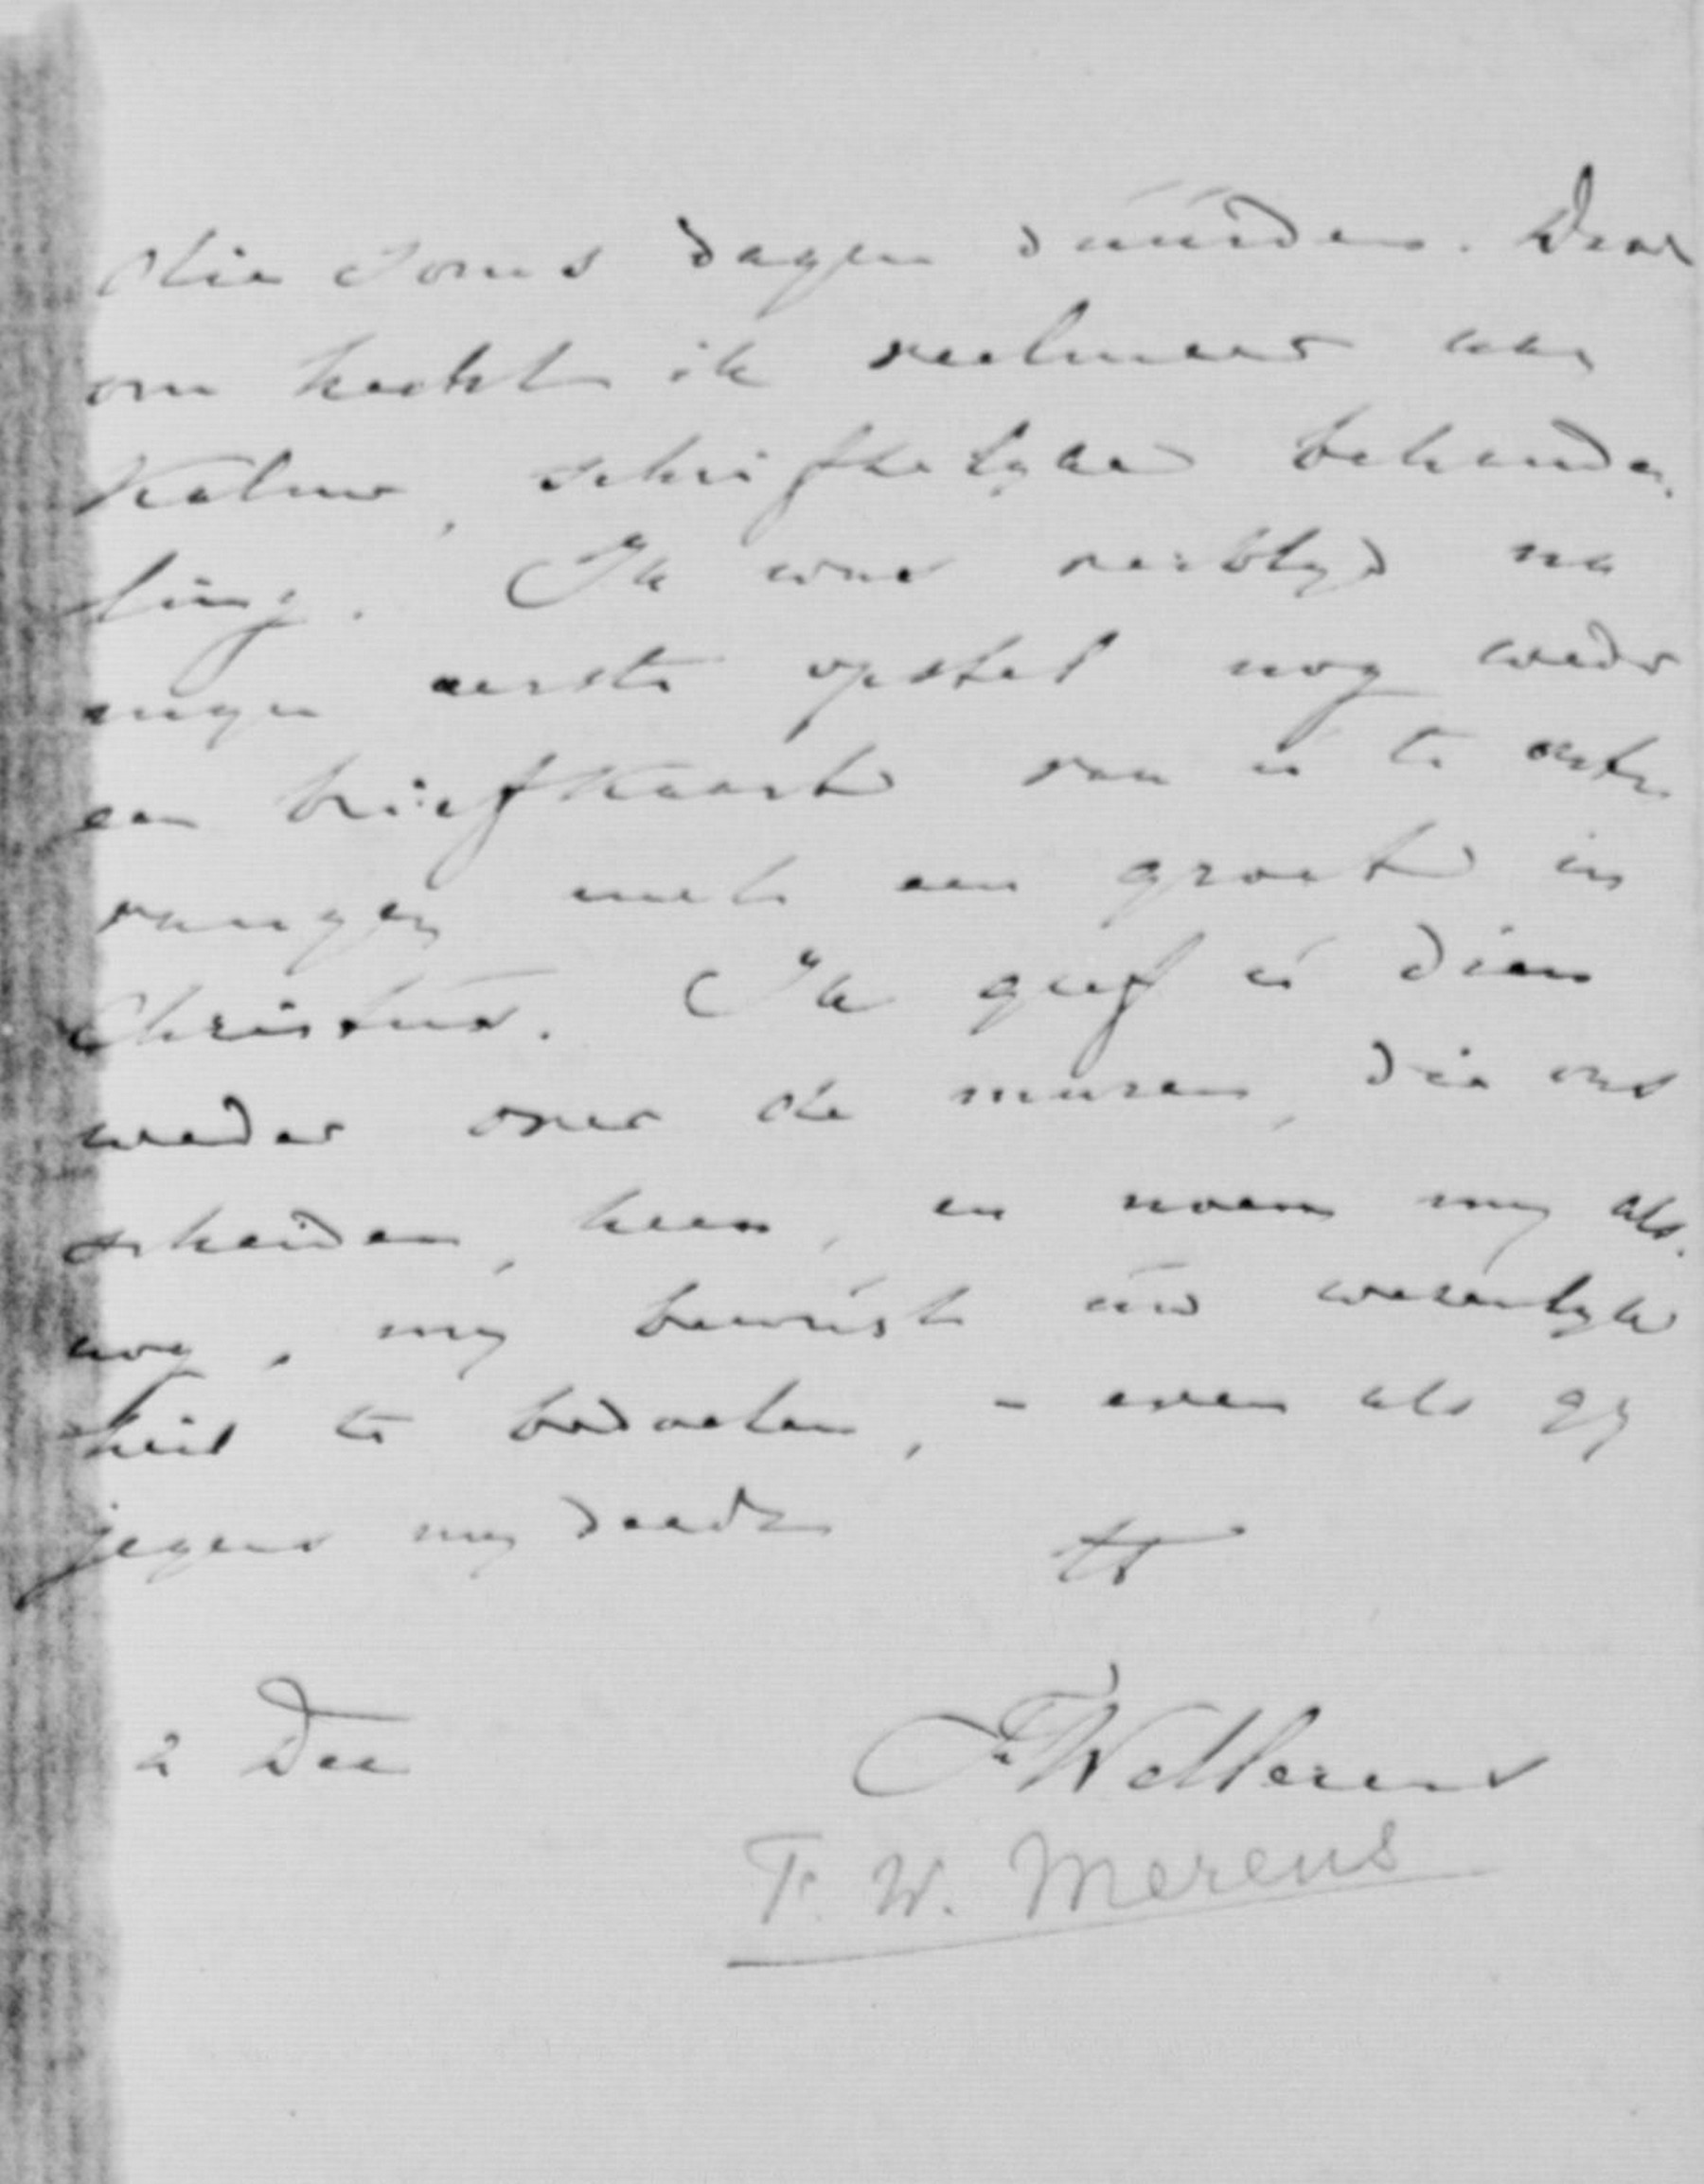 die soms dagen duurden. Daar
om hecht ik veelmeer aan
kalme, schriftelyke behande-
ling. Ik was verblyd na
myn eerste opstel nog weder
een briefkaart van u te ont-
vangen met een groet in
Christus. Ik geef u dien
weder over de muren, die ons
scheiden, heen, en noem my als-
nog, my bewust uw wezenlyk
heil te bedoelen, - even als gy
jegens my deedt
tt
2 Dec FWMerens
F. W. Merens